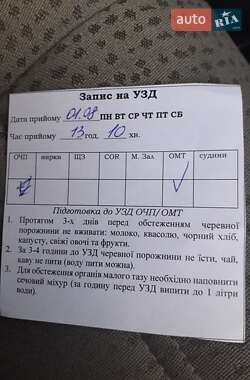 AUTO.RIA.com
Запис на УЗД
Дата прийому 01.08 ПН ВТ СР ЧТ ПТ СБ
Час прийому 13 год. 10 хв.
ОЧП нирки ЩЗ COR М. Зал ОМТ судини
Підготовка до УЗД ОЧП/ ОМТ
1. Протягом 3-х днів перед обстеженням черевної
порожнини не вживати: молоко, квасолю, чорний хліб,
капусту, свіжі овочі та фрукти.
2. За 3-4 години до УЗД черевної порожнини не їсти, чай,
каву не пити (воду пити можна).
3. Для обстеження органів малого тазу необхідно наповнити
сечовий міхур (за годину перед УЗД випити до 1 літри
води).